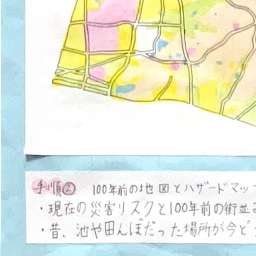 手順② 100年前の地図とハザードマップ
・現在の災害リスクと100年前の街並
・昔、池や田んぼだった場所が今ど